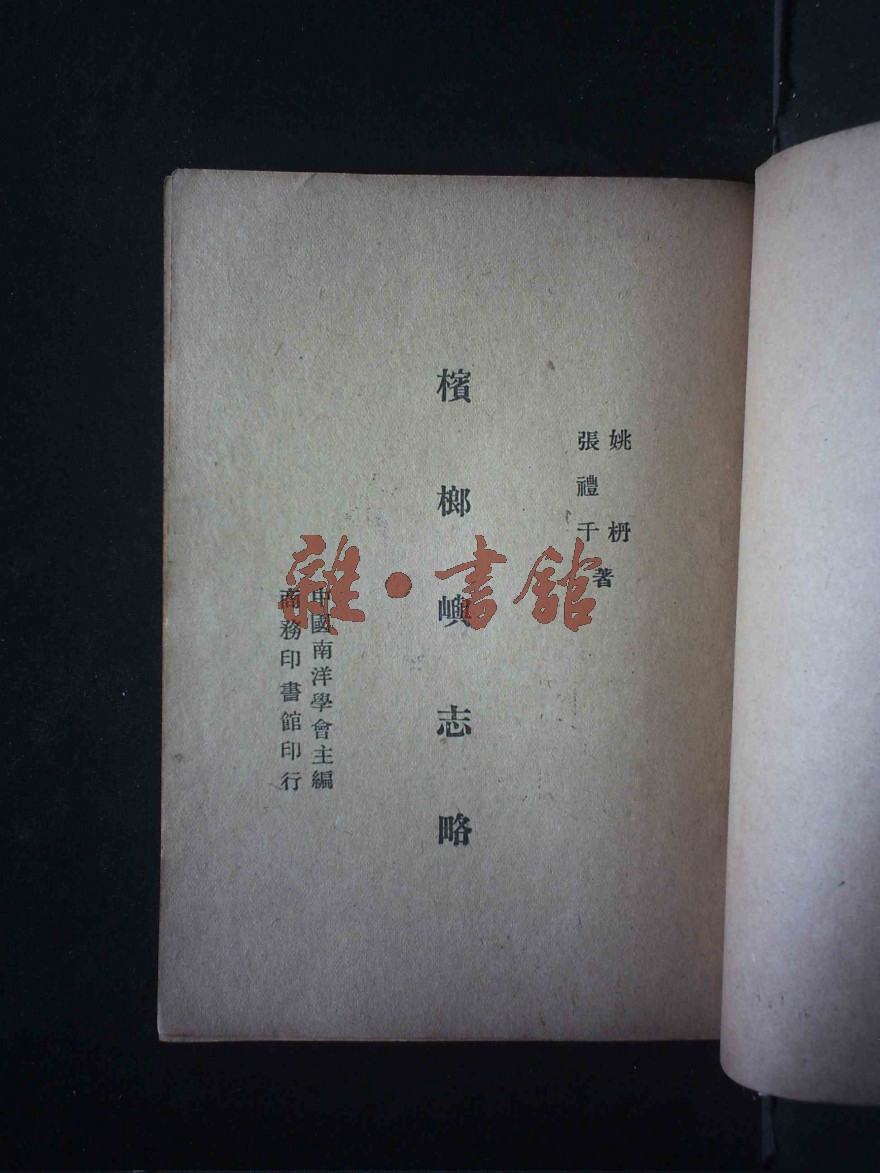 姚枬
張禮千 著
檳榔嶼志略
中國南洋學會主編
商務印書館印行
雜·書館